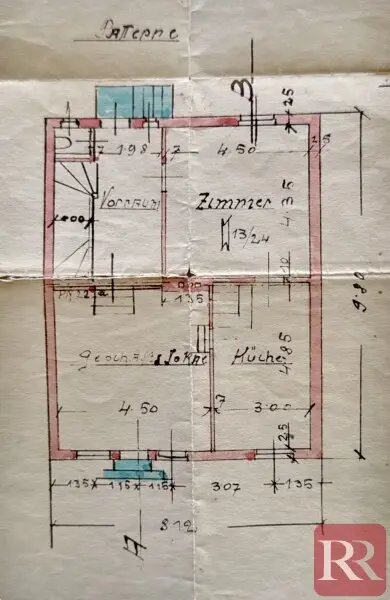 Parterre
B
25
198
7
4.50
25
Vorraum
Zimmer
4.35
1.00
13/24
9.80
135
Geschäfts Lokal
Küche
4.85
4.50
7
3.00
25
135
115
115
307
135
A
8.12
RR